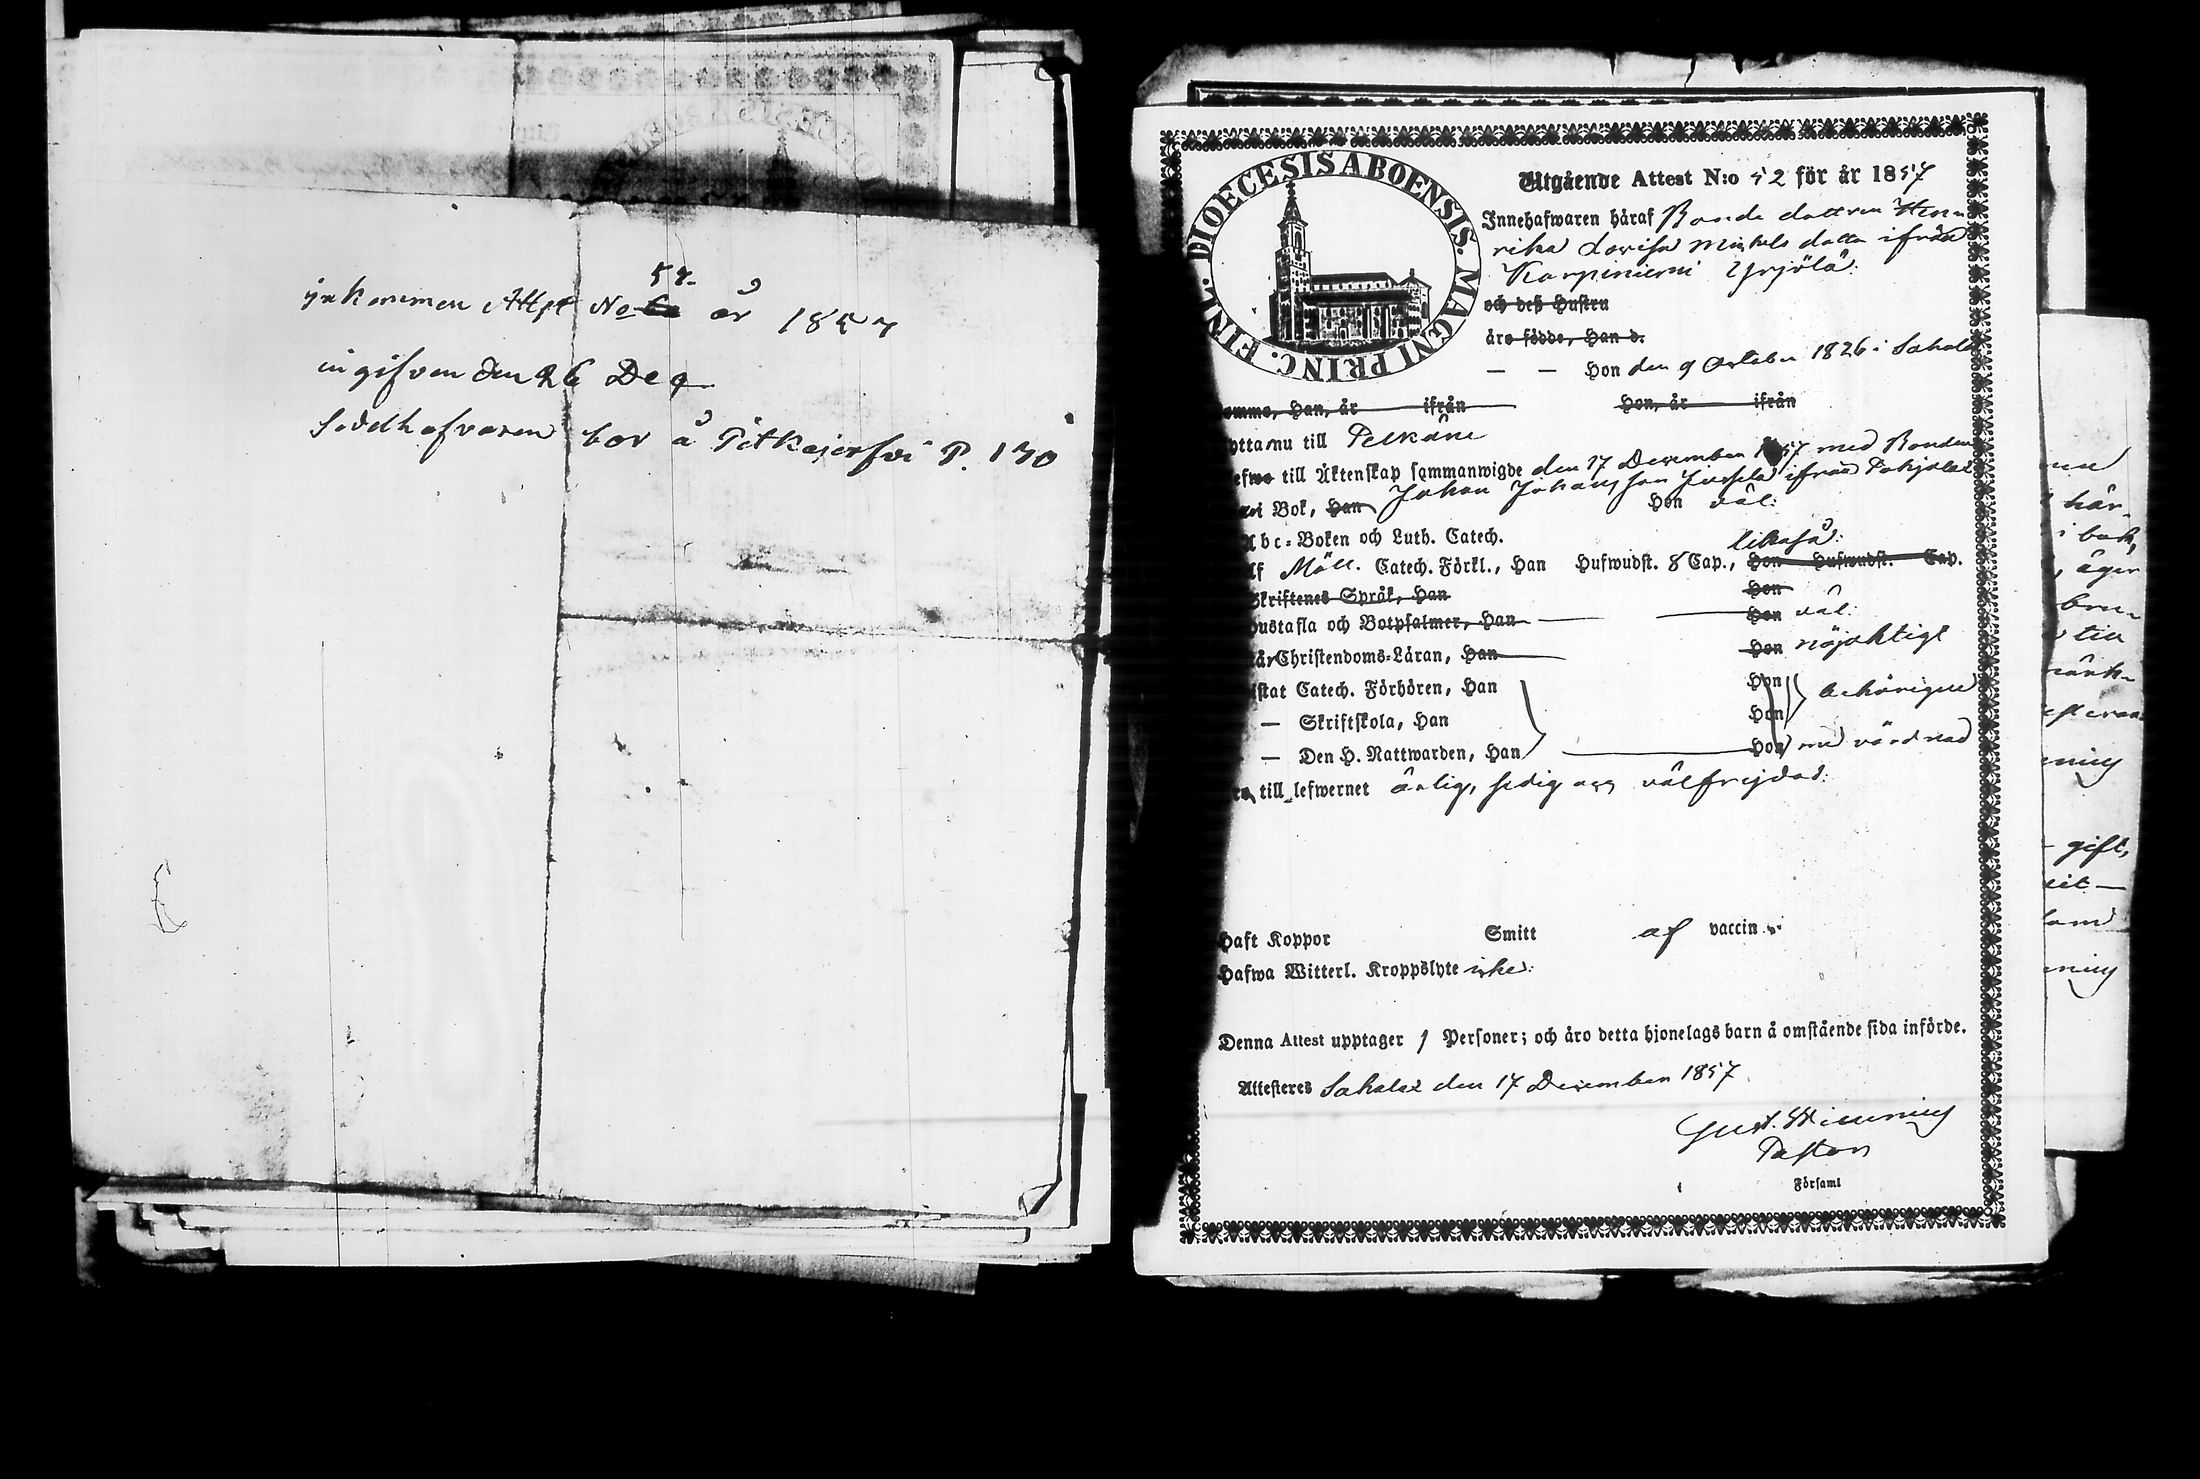 inkommen Attst No 58. år 1857
ingifven den 26 Dec
Sedelhafvaren bor å Pitkäjerfvi P. 130
DIOECESIS ABOENSIS. MAGNI PRINC. FINL.
Utgående Attest N:o 52 för år 1857
Innehafwaren häraf Bonde dottren Hen-
rika Lovisa Michels dotter ifrån
Karpenierni Yrjölä.
och deß Hustru
äro födde, Han d.
— — Hon den 9 October 1826 i Sahala
komme, Han, år ifrån Hon, år ifrån
nu till Pelkäne
till Äktenskap sammanwigde den 17 December 1857 med Bonden
Johan Johansson ifrån Pohjalax
i Bok, Han Hon väl.
Abc-Boken och Luth. Catech.
likaså.
Möll. Catech. Förkl., Han Hufwudst. 8 Cap., Hon Hufwudst. Cap.
Skriftenes Språk, Han Hon
Hustafla och Botpsalmer, Han Hon väl.
Christendoms-Läran, Han Hon nöjaktigt
Catech. Förhören, Han Hon behörigen
— Skriftskola, Han Hon
— Den H. Nattwarden, Han Hon med vördnad
till lefwernet ärlig, sedig och välfrejdad.
Haft Koppor Smitt af vaccin
Hafwa Witterl. Kroppslyte icke.
Denna Attest upptager 1 Personer; och äro detta hjonelags barn å omstående sida införde.
Attesteres Sahalax den 17 December 1857
Gust.
Pastor
Församl
här-
i bok,
äger
bru-
till
gift,